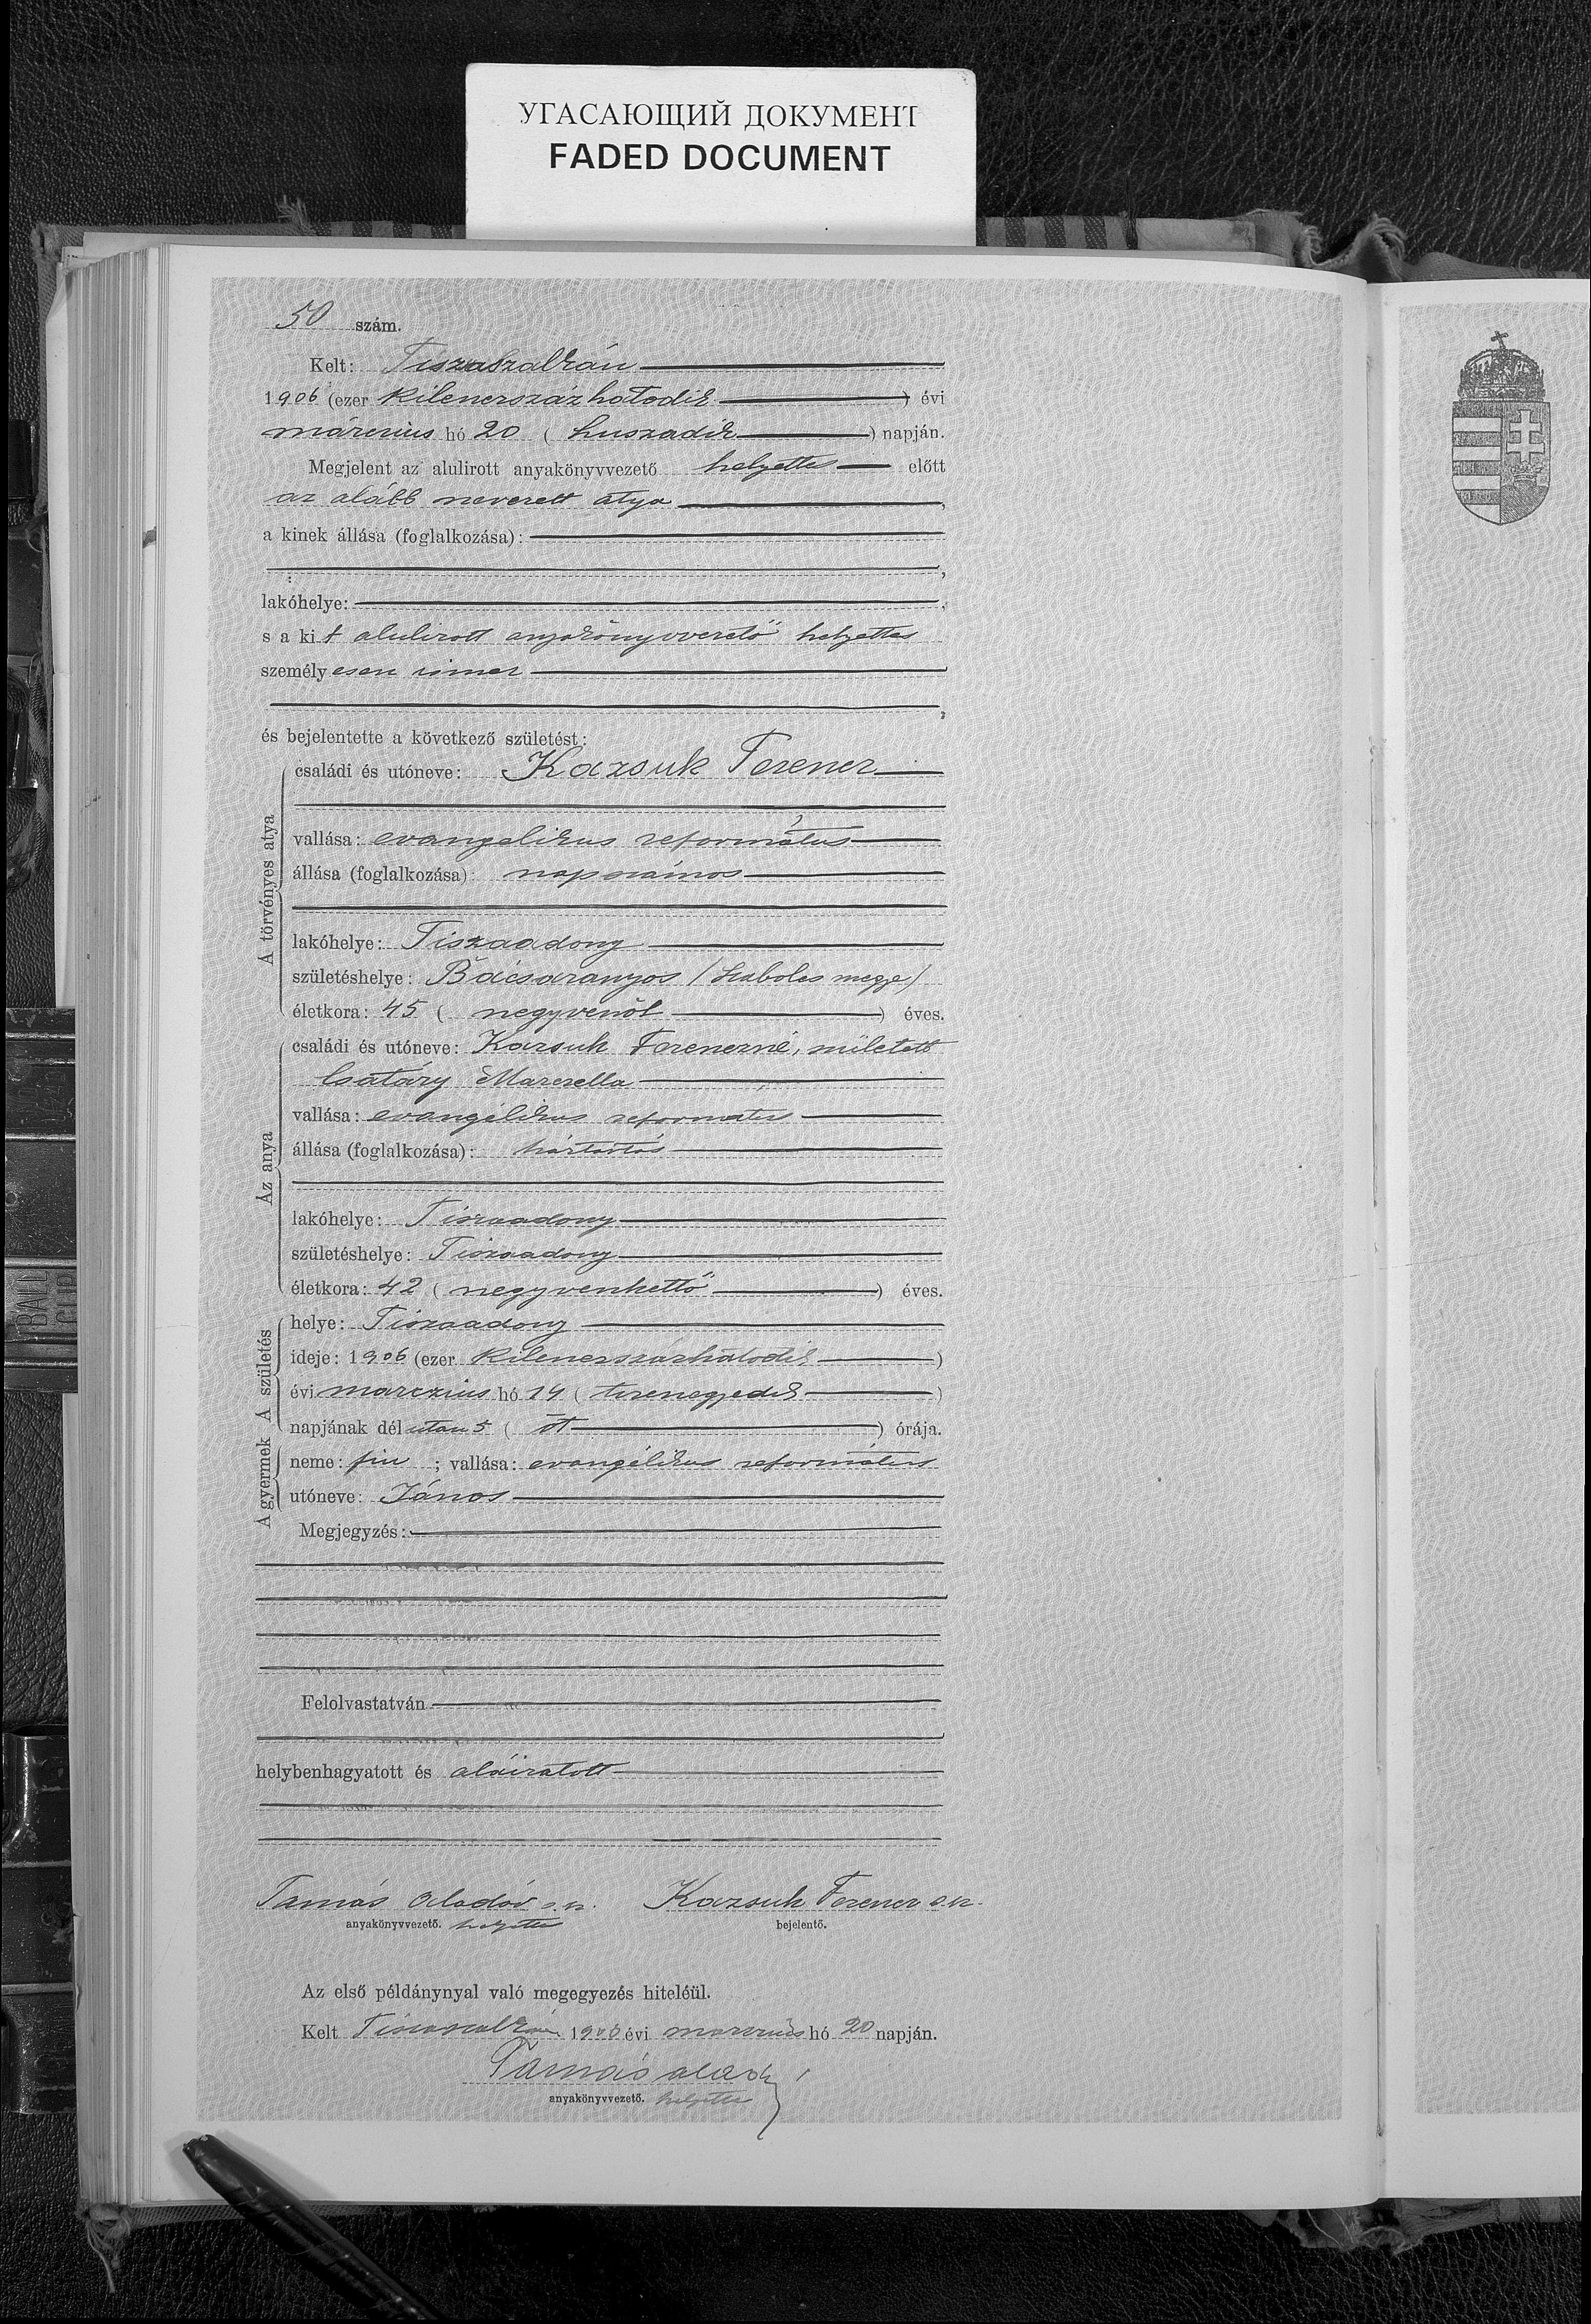 УГАСАЮЩИЙ ДОКУМЕНТ
FADED DOCUMENT
50 szám.
Kelt: Tiszaszalkán
1906 (ezer kilenczszázhatodik) évi
márczius hó 20 (huszadik) napján.
Megjelent az alulirott anyakönyvvezető helyettes előtt
az alább nevezett atya,
a kinek állása (foglalkozása):
,
lakóhelye: ,
s a kit alulirott anyakönyvvezető helyettes
személyesen ismer
,
és bejelentette a következő születést:
A törvényes atya
családi és utóneve: Kazsuk Ferencz
vallása: evangelikus református
állása (foglalkozása): napszámos
lakóhelye: Tiszaadony
születéshelye: Bácsaranyos /Szabolcs megye/
életkora: 45 (negyvenöt) éves.
Az anya
családi és utóneve: Kazsuk Ferenczné, született
Csatáry Marczella
vallása: evangélikus református
állása (foglalkozása): háztartás
lakóhelye: Tiszaadony
születéshelye: Tiszaadony
életkora: 42 (negyvenkettő) éves.
A születés
helye: Tiszaadony
ideje: 1906 (ezer kilenczszázhatodik)
évi marczius hó 14 (tizennegyedik)
napjának délután 5 (öt) órája.
A gyermek
neme: fiu; vallása: evangélikus református
utóneve: János
Megjegyzés:
Felolvastatván
,
helybenhagyatott és aláiratott
Tamás Aladár s. k. Kazsuk Ferencz s. k.
anyakönyvvezető. helyettes bejelentő.
Az első példánynyal való megegyezés hiteléül.
Kelt Tiszaszalkán 1906 évi marczius hó 20 napján.
Tamás Aladár
anyakönyvvezető. helyettes
BALL
CLIP